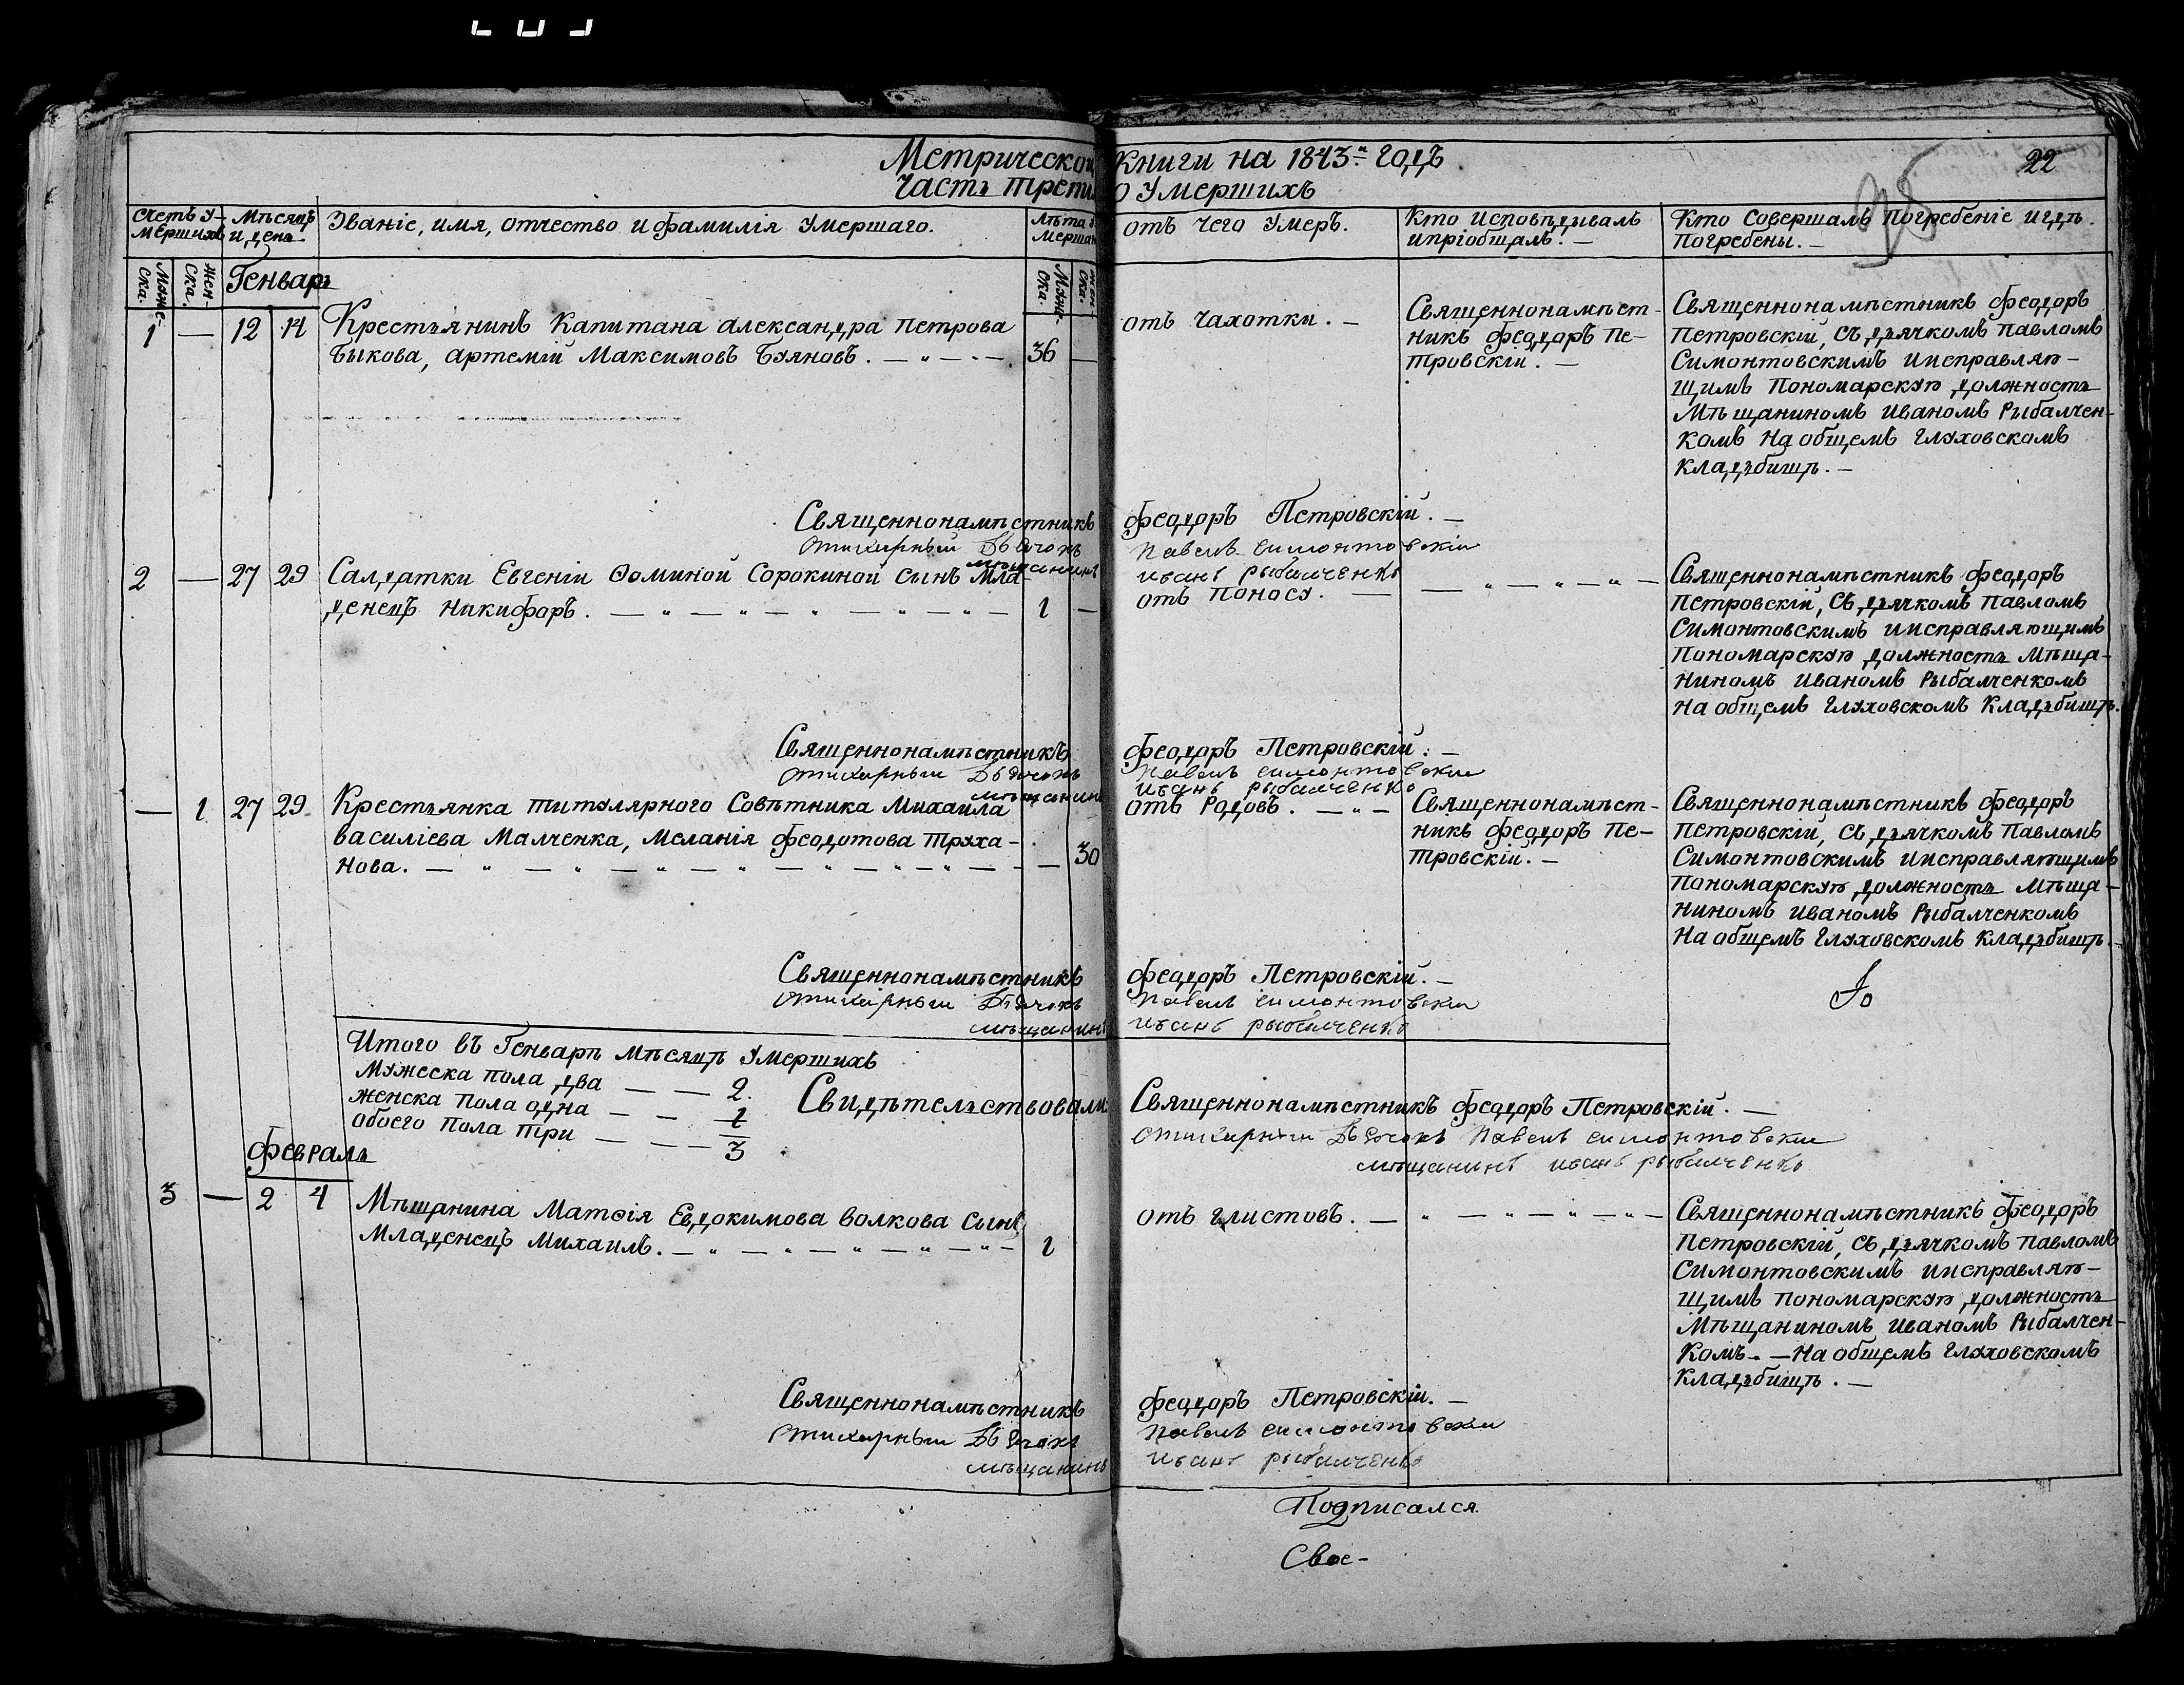 Метрической Книги на 1843й годъ
22
Часть третія О Умершихъ
Счетъ у-
мершихъ
Мѣсяцъ
и день
Званіе, имя, отчество и фамилія Умершаго.
Лѣта У-
мершаго
отъ чего Умеръ.
Кто Исповѣдывалъ
ипріобщалъ. —
Кто Совершалъ Погребеніе игдѣ
Погребены. —
Муже-
ска.
Жен-
ска.
Генварь
Муже-
ска.
Жен-
ска.
1 — 12 14 Крестьянинъ Капитана александра Петрова
Быкова, артемій Максимовъ Буяновъ. — " — — 36 —
отъ Чахотки. —
Священнонамѣст-
никъ Феодоръ Пе-
тровскій. —
Священнонамѣстникъ Феодоръ
Петровскій, съ дьячкомъ Павломъ
Симонтовскимъ иисправляю-
щимъ Пономарскую должность
Мѣщаниномъ Иваномъ Рыбалчен-
комъ На общемъ Глуховскомъ
кладьбищѣ. —
Священнонамѣстникъ Феодоръ Петровскій. —
Стихирный Дьячокъ Павелъ Симонтовскій
мѣщанинъ иванъ рыбалченко
2 — 27 29 Салдатки Евгеніи Ѳоминой Сорокиной сынъ Мла-
денецъ Никифоръ. — " — " — " — " — " — 1 —
отъ Поносу. — — " — " — " —
Священнонамѣстникъ Феодоръ
Петровскій, съ дьячкомъ Павломъ
Симонтовскимъ иисправляющимъ
Пономарскую должность Мѣща-
ниномъ Иваномъ Рыбалченкомъ
На общемъ Глуховскомъ Кладьбищѣ.
Священнонамѣстникъ Феодоръ Петровскій. —
Стихирный Дьячокъ Павелъ Симонтовскій
мѣщанинъ иванъ рыбалченко
— 1 27 29 Крестьянка титулярного Совѣтника Михаила
василіева Малченка, Меланія Феодотова Труха-
нова. — " — " — " — " — " — " — " — — 30
отъ Родовъ. — " —
Священнонамѣст-
никъ Феодоръ Пе-
тровскій. —
Священнонамѣстникъ Феодоръ
Петровскій, съ дьячкомъ Павломъ
Симонтовскимъ иисправляющимъ
Пономарскую должность Мѣща-
ниномъ Иваномъ Рыбалченкомъ
На общемъ Глуховскомъ Кладьбищѣ. —
Священнонамѣстникъ Феодоръ Петровскій. —
Стихирный Дьячокъ Павелъ Симонтовскій
мѣщанинъ иванъ рыбалченко
Итого въ Генварѣ мѣсяцѣ Умершихъ
Мужеска пола два — — 2.
женска пола одна — — 1
обоего пола три — — — 3
Свидѣтельствовали
Священнонамѣстникъ Феодоръ Петровскій. —
Стихирный Дьячокъ Павелъ Симонтовскій
мѣщанинъ иванъ рыбалченко
Февраль
3 — 2 4 Мѣщанина Матѳія Евдокимова Волкова Сынъ
Младенецъ Михаилъ. — " — " — " — " — " — 1
отъ глистовъ. — " — " — " — " —
Священнонамѣстникъ Феодоръ
Петровскій, съ дьячкомъ Павломъ
Симонтовскимъ иисправляю-
щимъ Пономарскую должность
Мѣщаниномъ Иваномъ Рыбалчен-
комъ. — На общемъ Глуховскомъ
Кладьбищѣ. —
Священнонамѣстникъ Феодоръ Петровскій. —
Стихирный Дьячокъ Павелъ Симонтовскій
мѣщанинъ иванъ рыбалченко
Подписался
Свое-